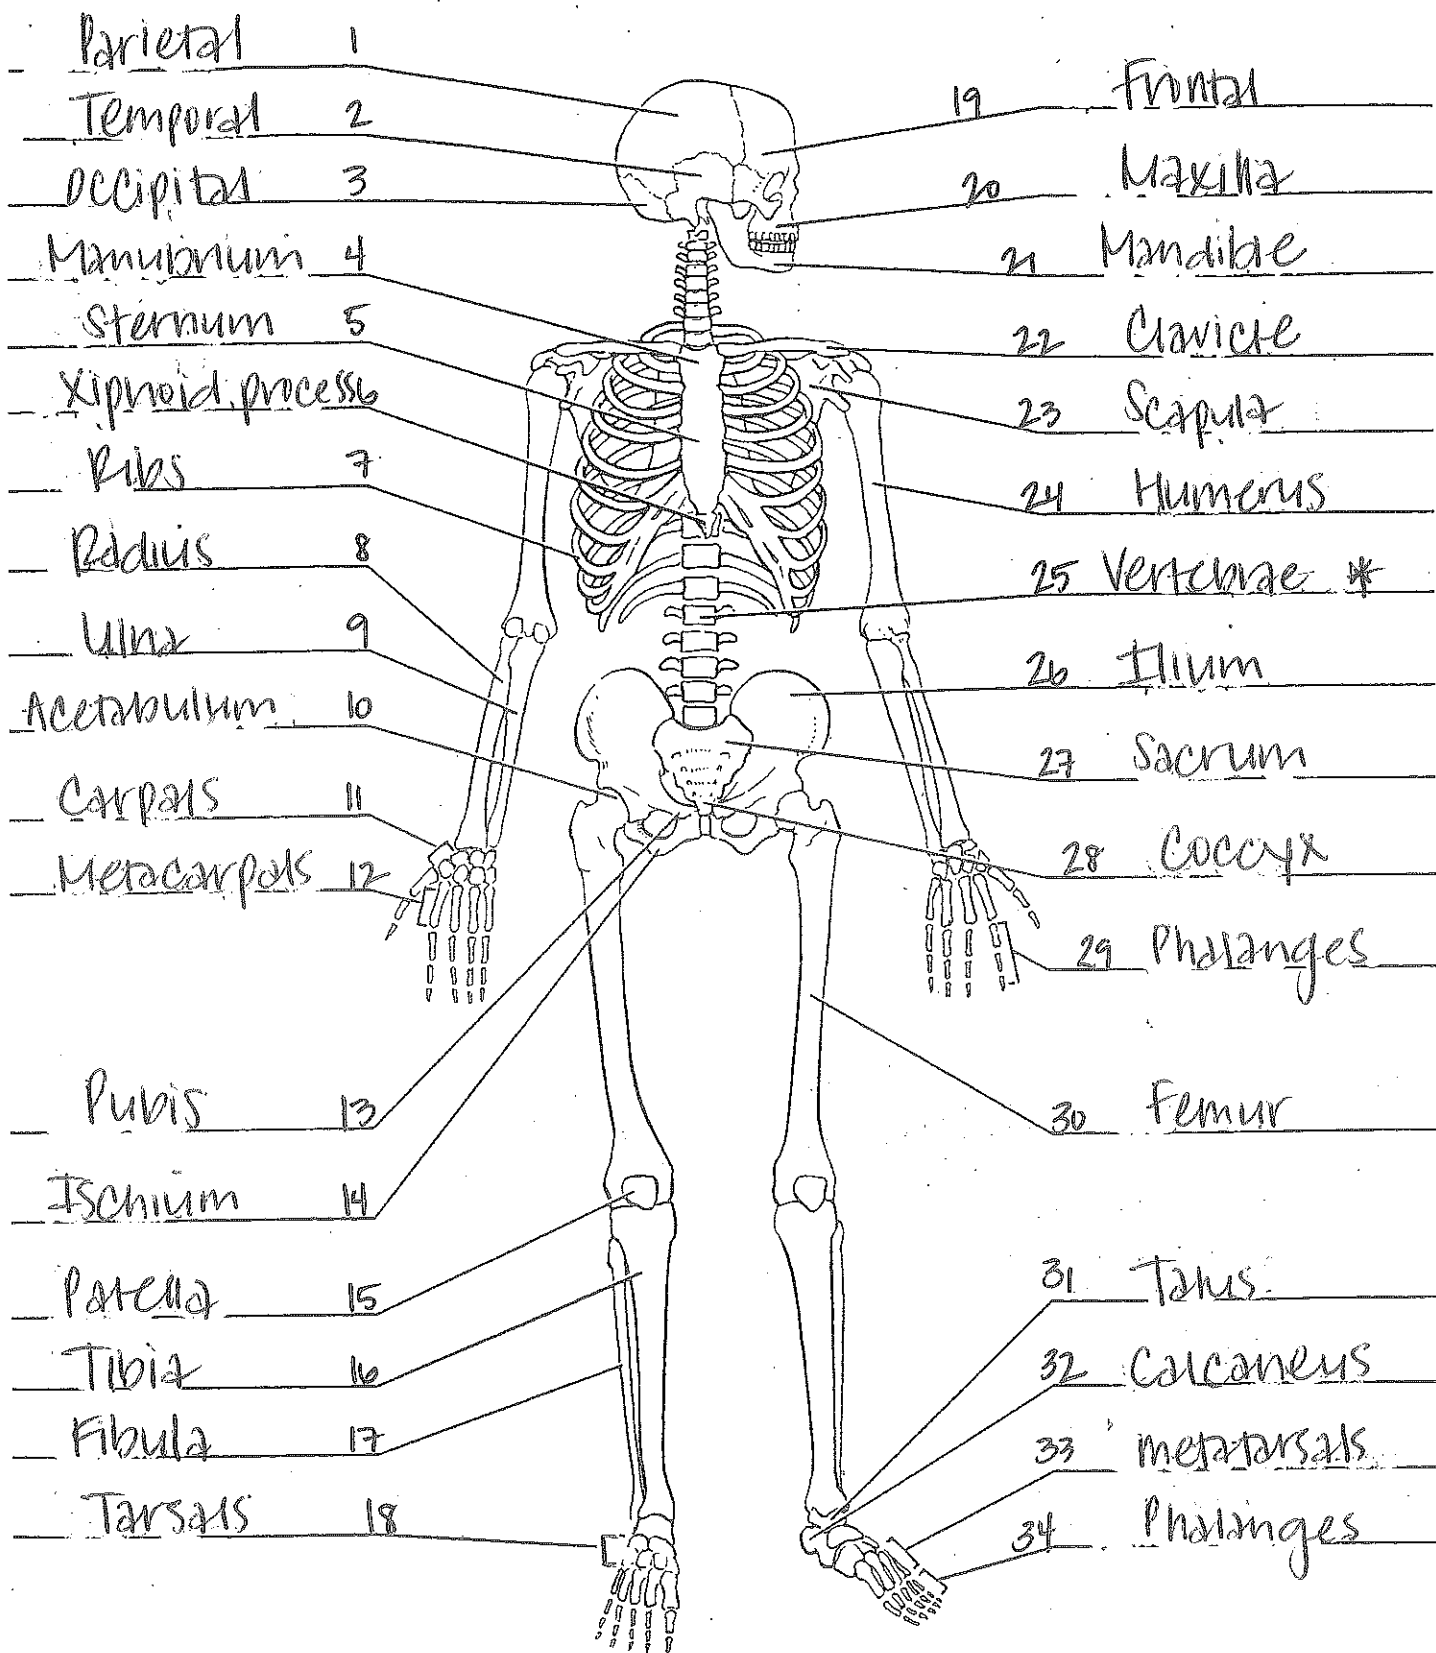 Parietal 1
Temporal 2
Occipital 3
Manubrium 4
Sternum 5
Xiphoid process 6
Ribs 7
Radius 8
Ulna 9
Acetabulum 10
Carpals 11
Metacarpals 12
Pubis 13
Ischium 14
Patella 15
Tibia 16
Fibula 17
Tarsals 18
19 Frontal
20 Maxilla
21 Mandible
22 Clavicle
23 Scapula
24 Humerus
25 Vertebrae *
26 Ilium
27 Sacrum
28 Coccyx
29 Phalanges
30 Femur
31 Talus
32 Calcaneus
33 metatarsals
34 Phalanges